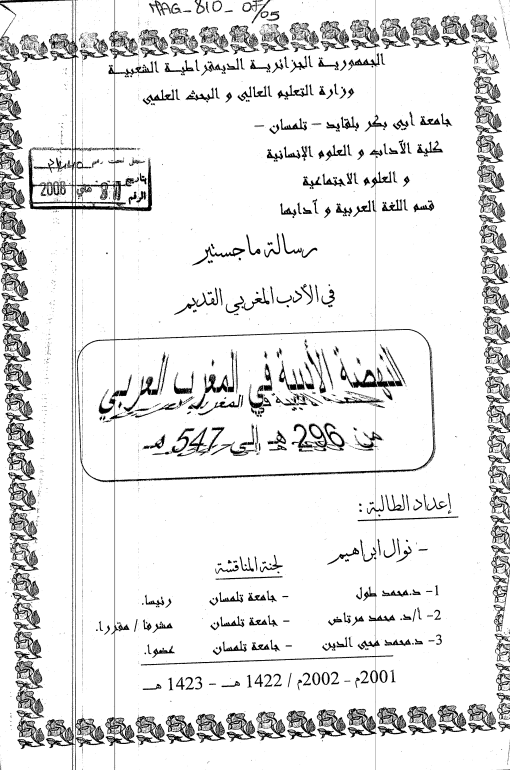 MAG-810-07/05
الجمهورية الجزائرية الديمقراطية الشعبية
وزارة التعليم العالي و البحث العلمي
جامعة أبي بكر بلقايد - تلمسان -
كلية الآداب و العلوم الإنسانية
و العلوم الاجتماعية
قسم اللغة العربية و آدابها
سجل تحت رقم
بتاريخ
2008
الرقم
رسالة ماجستير
في الأدب المغربي القديم
النهضة الأدبية في المغرب العربي
من 296 هـ إلى 547 هـ
إعداد الطالبة :
- نوال ابراهيم
لجنة المناقشة
1- د.محمد طول - جامعة تلمسان رئيسا.
2- أ/د. محمد مرتاض - جامعة تلمسان مشرفا / مقررا.
3- د.محمد محيي الدين - جامعة تلمسان عضوا.
2001م - 2002م / 1422 هـ - 1423 هـ